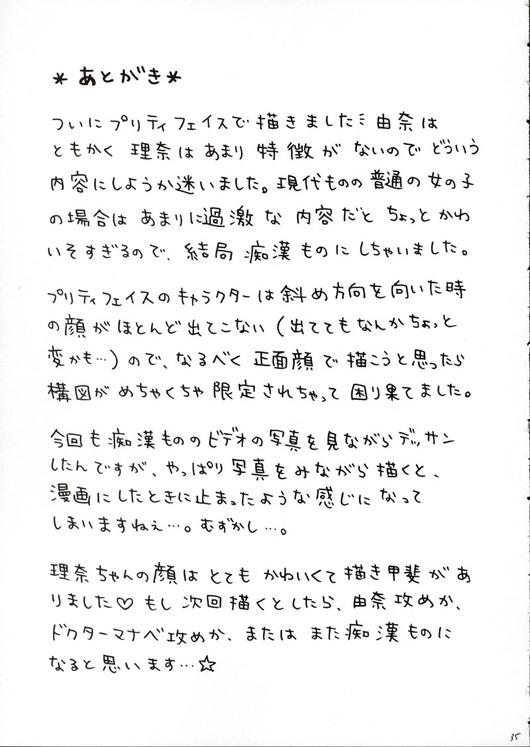 * あとがき *
ついにプリティフェイスで描きました！由奈は
ともかく 理奈は あまり 特徴が ないので どういう
内容にしようか迷いました。現代ものの普通の女の子
の場合は あまりに過激な 内容だと ちょっとかわ
いそすぎるので、結局 痴漢ものにしちゃいました。
プリティフェイスのキャラクターは斜め方向を向いた時
の顔がほとんど出てこない（出ててもなんかちょっと
変かも…）ので、なるべく 正面顔で描こうと思ったら
構図が めちゃくちゃ 限定されちゃって 困り果てました。
今回も痴漢もののビデオの写真を見ながらデッサン
したんですが、やっぱり写真をみながら描くと、
漫画にしたときに止まったような感じになって
しまいますねぇ…。むずかし…。
理奈ちゃんの顔は とても かわいくて描き甲斐があ
りました♡ もし 次回描くとしたら、由奈攻めか、
ドクターマナベ攻めか、または また痴漢ものに
なると思います…☆
35